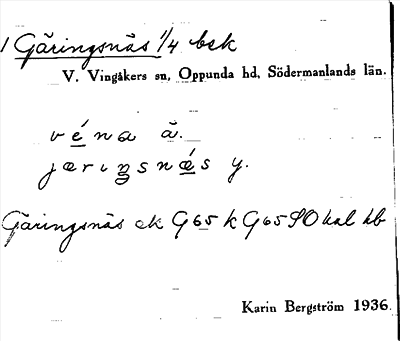 1 Gäringsnäs 1/4 bsk
V. Vingåkers sn, Oppunda hd, Södermanlands län.
véna ä.
jæriŋsnǽs y.
Gäringsnäs ek G65 k G65 SO kal kb
Karin Bergström 1936.